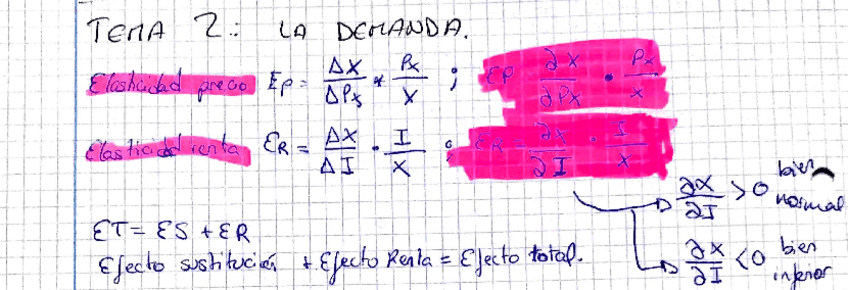 TEMA 2: LA DEMANDA.
Elasticidad precio Ep = ΔX/ΔPx * Px/X ; Ep ∂X/∂Px · Px/X
Elasticidad renta ER = ΔX/ΔI · I/X ; ER = ∂X/∂I · I/X
∂X/∂I > 0 bien normal
ET = ES + ER
Efecto sustitución + Efecto Renta = Efecto total.
∂X/∂I < 0 bien inferior